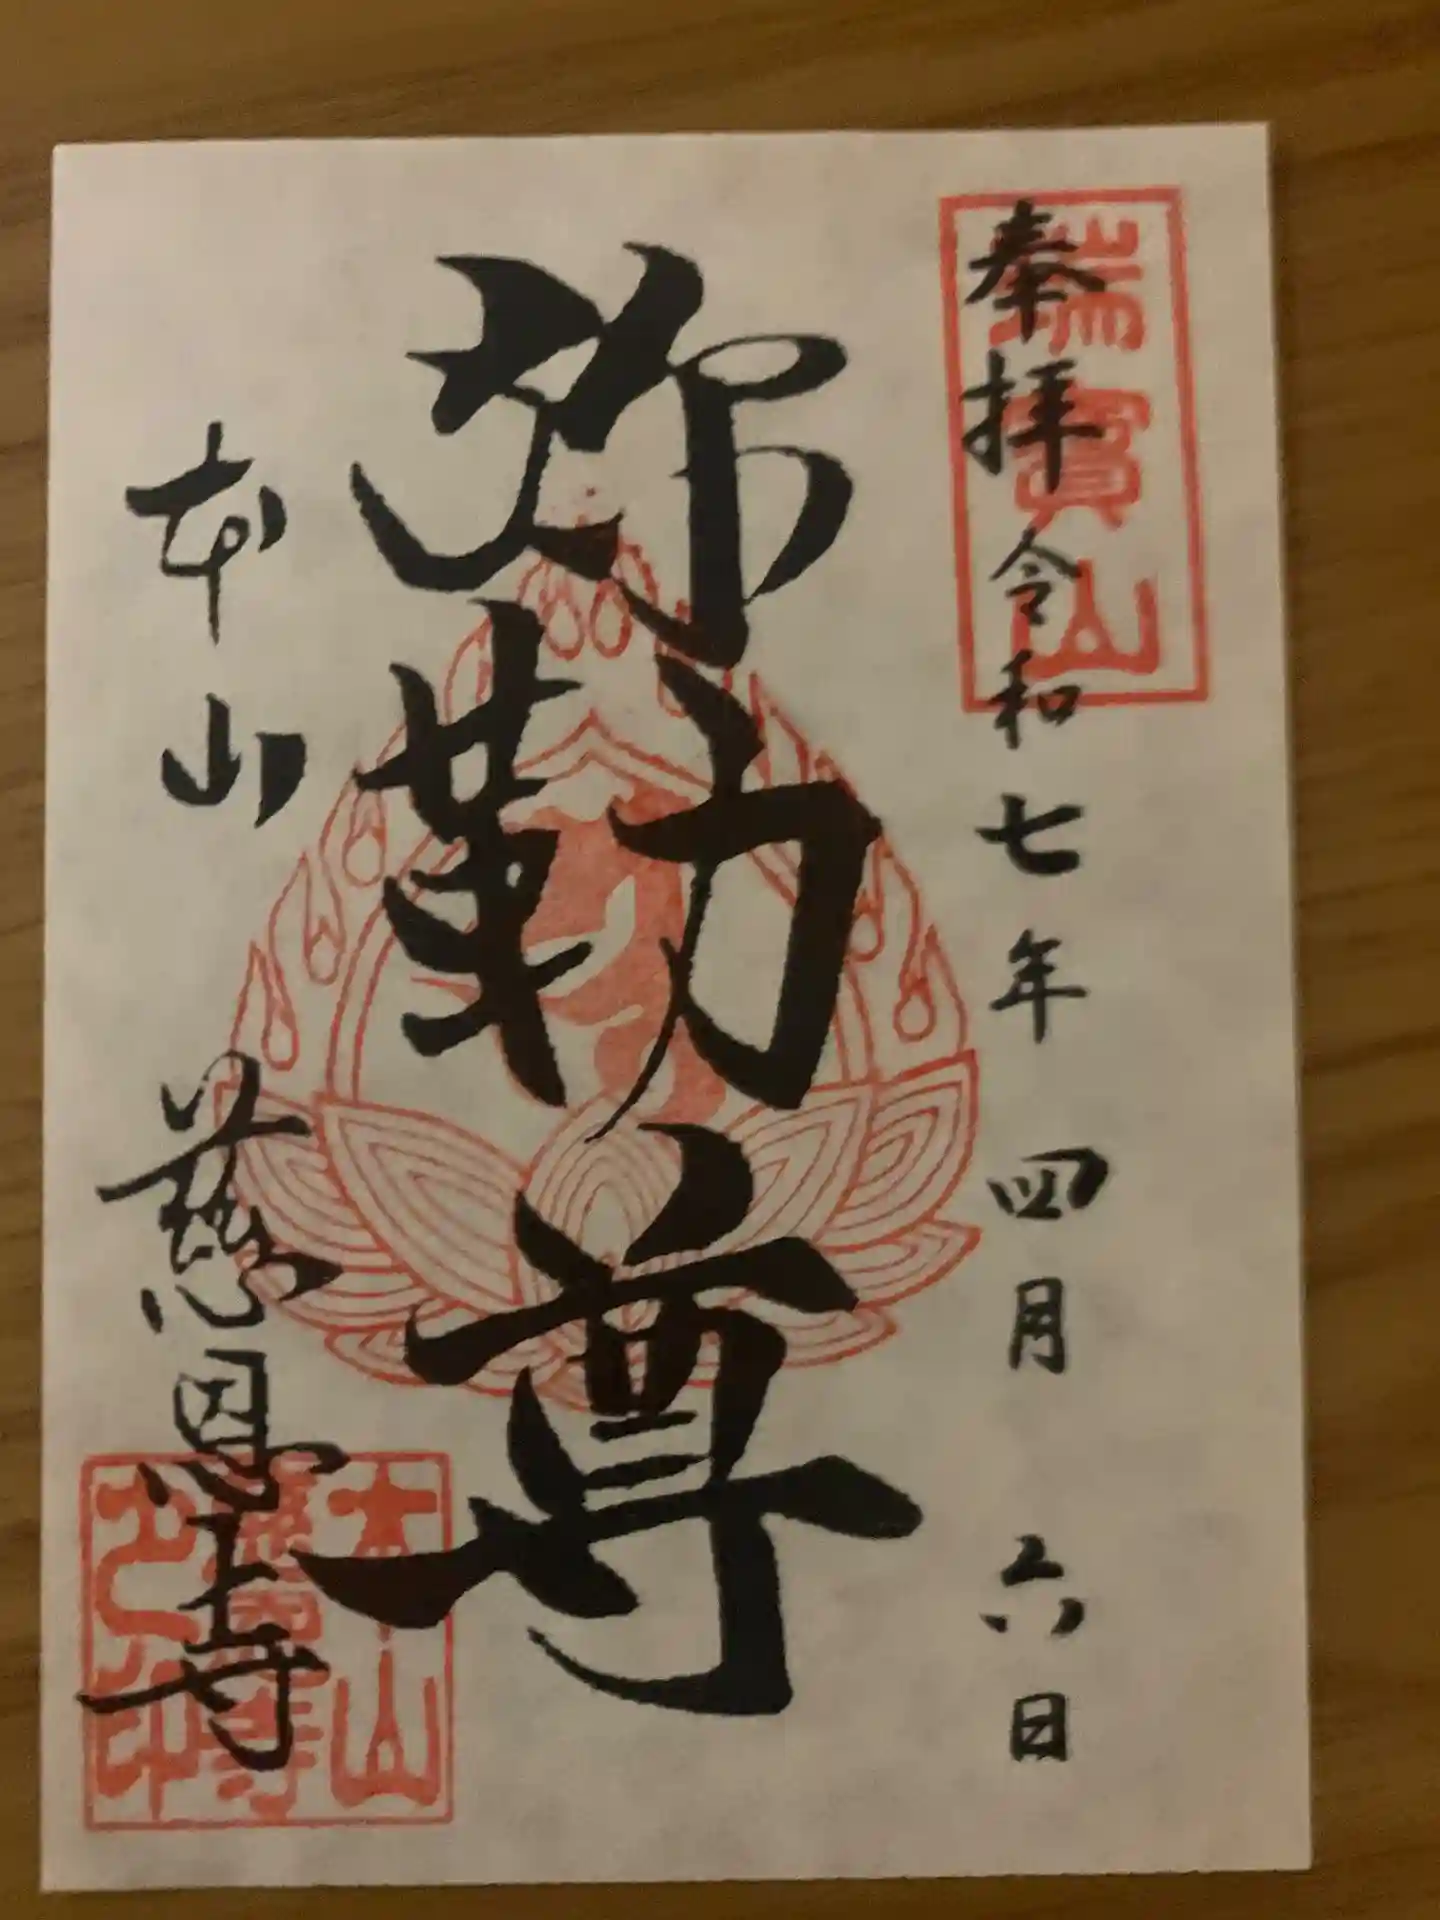 奉拝 令和七年 四月 六日
瑞寶山
弥勒尊
本山 慈恩寺
本山慈恩寺之印